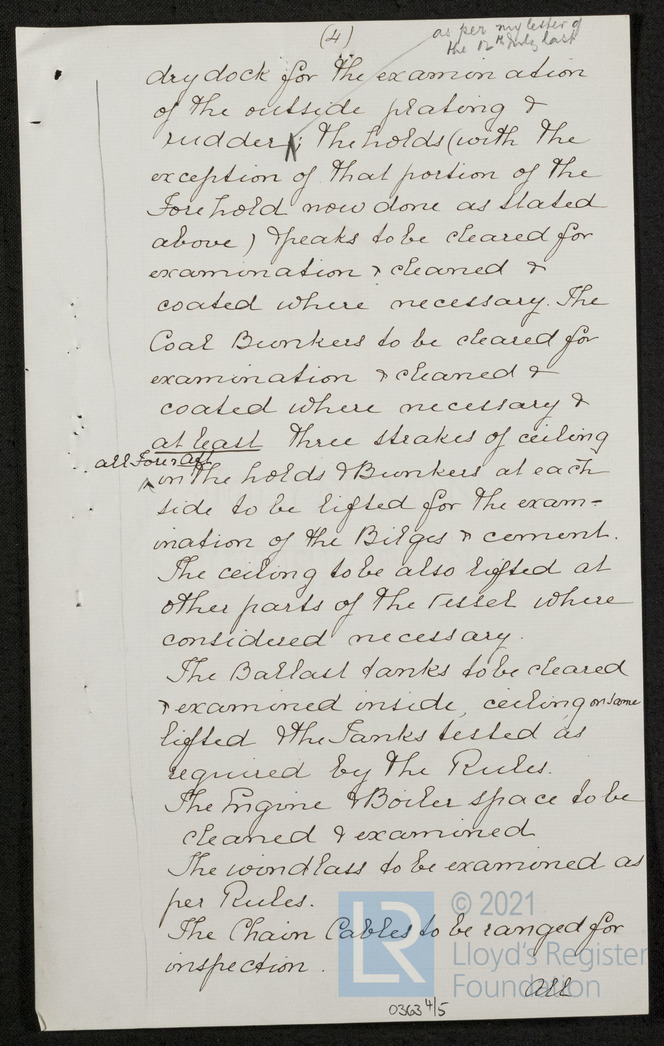 (4)
as per my letter of
the 12th July last
dry dock for the examination
of the outside plating &
rudder; the holds (with the
exception of that portion of the
Fore hold now done as stated
above) & peaks to be cleared for
examination & cleaned &
coated where necessary. The
Coal Bunkers to be cleared for
examination & cleaned &
coated where necessary &
at least three strakes of ceiling
all Fore & Aft
in the holds & Bunkers at each
side to be lifted for the exam-
ination of the Bilges & cement.
The ceiling to be also lifted at
other parts of the vessel where
considered necessary.
The Ballast tanks to be cleared
& examined inside, ceiling on same
lifted & the Tanks tested as
required by the Rules.
The Engine & Boiler space to be
cleaned & examined
The windlass to be examined as
per Rules.
The Chain Cables to be ranged for
inspection.
All
LR
© 2021
Lloyd's Register
Foundation
0363 4/5